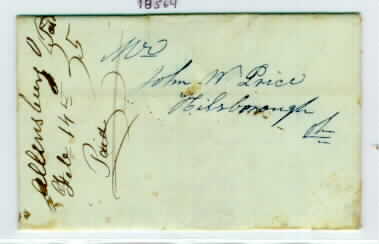 18564
Allensburg O
Feb 14th
Paid 5
Paid
Mr
John W Price
Hilsborough
Oh